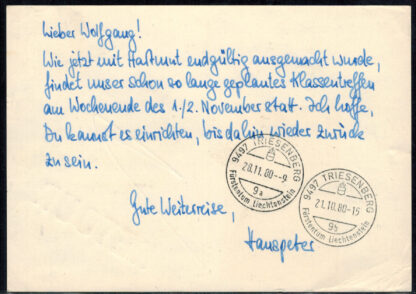 Lieber Wolfgang!
Wie jetzt mit Hartmut endgültig ausgemacht wurde,
findet unser schon so lange geplantes Klassentreffen
am Wochenende des 1./2. November statt. Ich hoffe,
Du kannst es einrichten, bis dahin wieder zurück
zu sein.
Gute Weiterreise,
Hanspeter
9497 TRIESENBERG
28.11.80--9
9a
Fürstentum Liechtenstein
9497 TRIESENBERG
21.10.80-15
9b
Fürstentum Liechtenstein